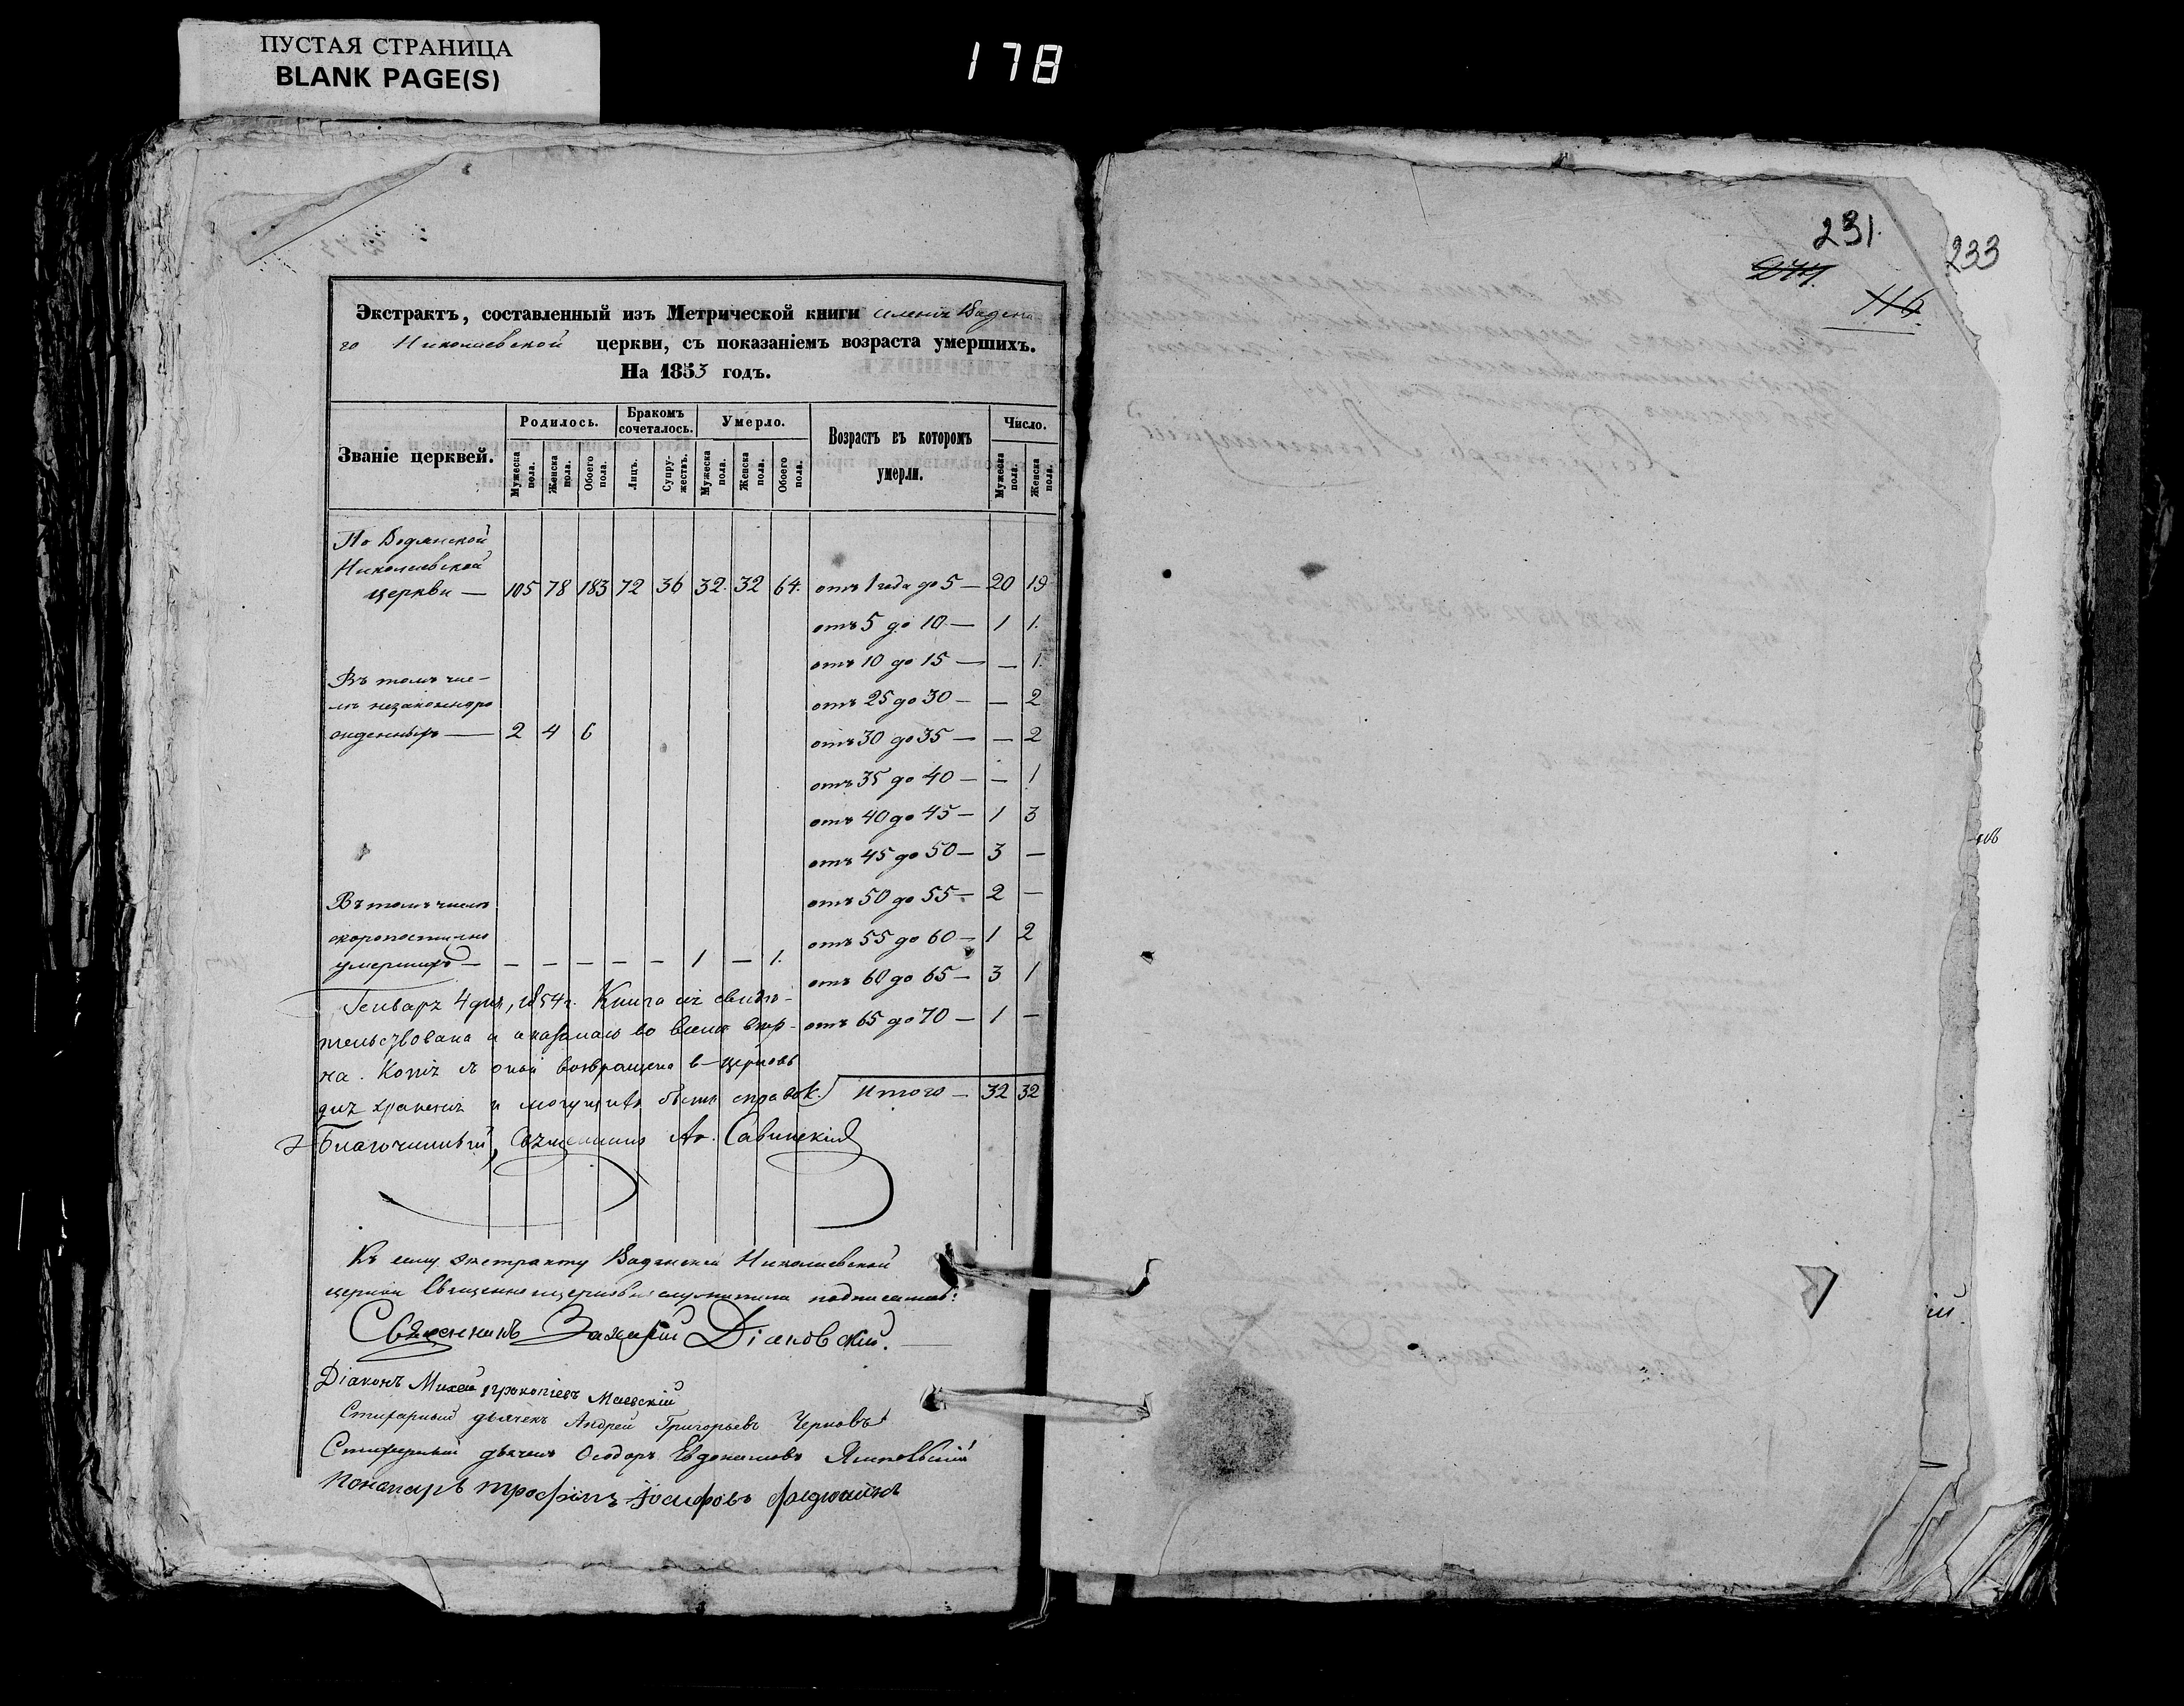 ПУСТАЯ СТРАНИЦА
BLANK PAGE(S)
178
Экстрактъ, составленный изъ Метрической книги
го Николаевской церкви, съ показаніемъ возраста умершихъ.
На 1853 годъ.
Званіе церквей. Родилось. Бракомъ сочеталось. Умерло. Возрастъ въ которомъ умерли. Число.
Мужеска пола. Женска пола. Обоего пола. Лицъ. Супружествъ. Мужеска пола. Женска пола. Обоего пола. Мужеска пола. Женска пола.
По Водянской
Николаевской
церкви — 105 78 183 72 36 32. 32 64. отъ 1 года до 5 — 20 19
отъ 5 до 10 — 1 1.
отъ 10 до 15 — — 1.
Въ томъ чис-
лѣ незаконноро
отъ 25 до 30 — — 2
жденныхъ — 2 4 6
отъ 30 до 35 — — 2
отъ 35 до 40 — — 1
отъ 40 до 45 — 1 3
отъ 45 до 50 — 3 —
Въ томъ числѣ
отъ 50 до 55 — 2 —
скоропостижно
отъ 55 до 60 — 1 2
умершихъ — — — — — — 1 — 1.
отъ 60 до 65 — 3 1
отъ 65 до 70 — 1 —
Итого — 32 32
Генваря 4 дня, 1854 г. Книга сія свидѣ-
тельствована и оказалась во всемъ вѣр-
на. Копія съ оной возвращена в церковь
для храненія и могущихъ быть справок.
Благочинный, Священникъ Савинскій
Къ сему экстракту Водянской Николаевской
церкви священноцерковнослужители подписались:
Священникъ Захарій Діаковскій.
Діаконъ Михей Прокопіевъ Маевскій
Стихарный дьячекъ Андрей Григорьевъ Черновъ
Стихарный дьячекъ Ѳеодоръ Евдокимовъ
Пономарь Трофимъ Іосифовъ
231.
233
116.